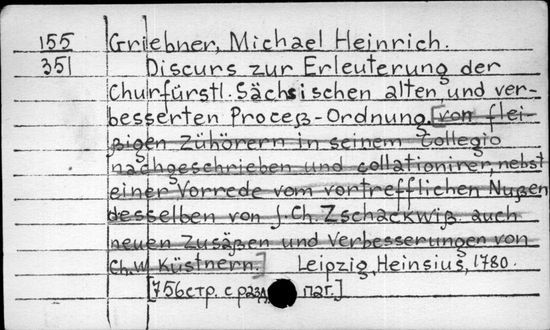 155 Griebner, Michael Heinrich.
351 Discurs zur Erleuterung der
Churfürstl. Sächsischen alten und ver-
besserten Proceß-Ordnung. [von flei-
ßigen Zühörern in seinem Collegio
nachgeschrieben und collationirer, nebst
einer Vorrede vom vortrefflichen Nußen
desselben von J. Ch. Zschackwiß auch
neuen Zusäßen und Verbesserungen von
Ch. W. Küstnern.] Leipzig, Heinsius, 1780.
[756 стр. с разд. паг.]